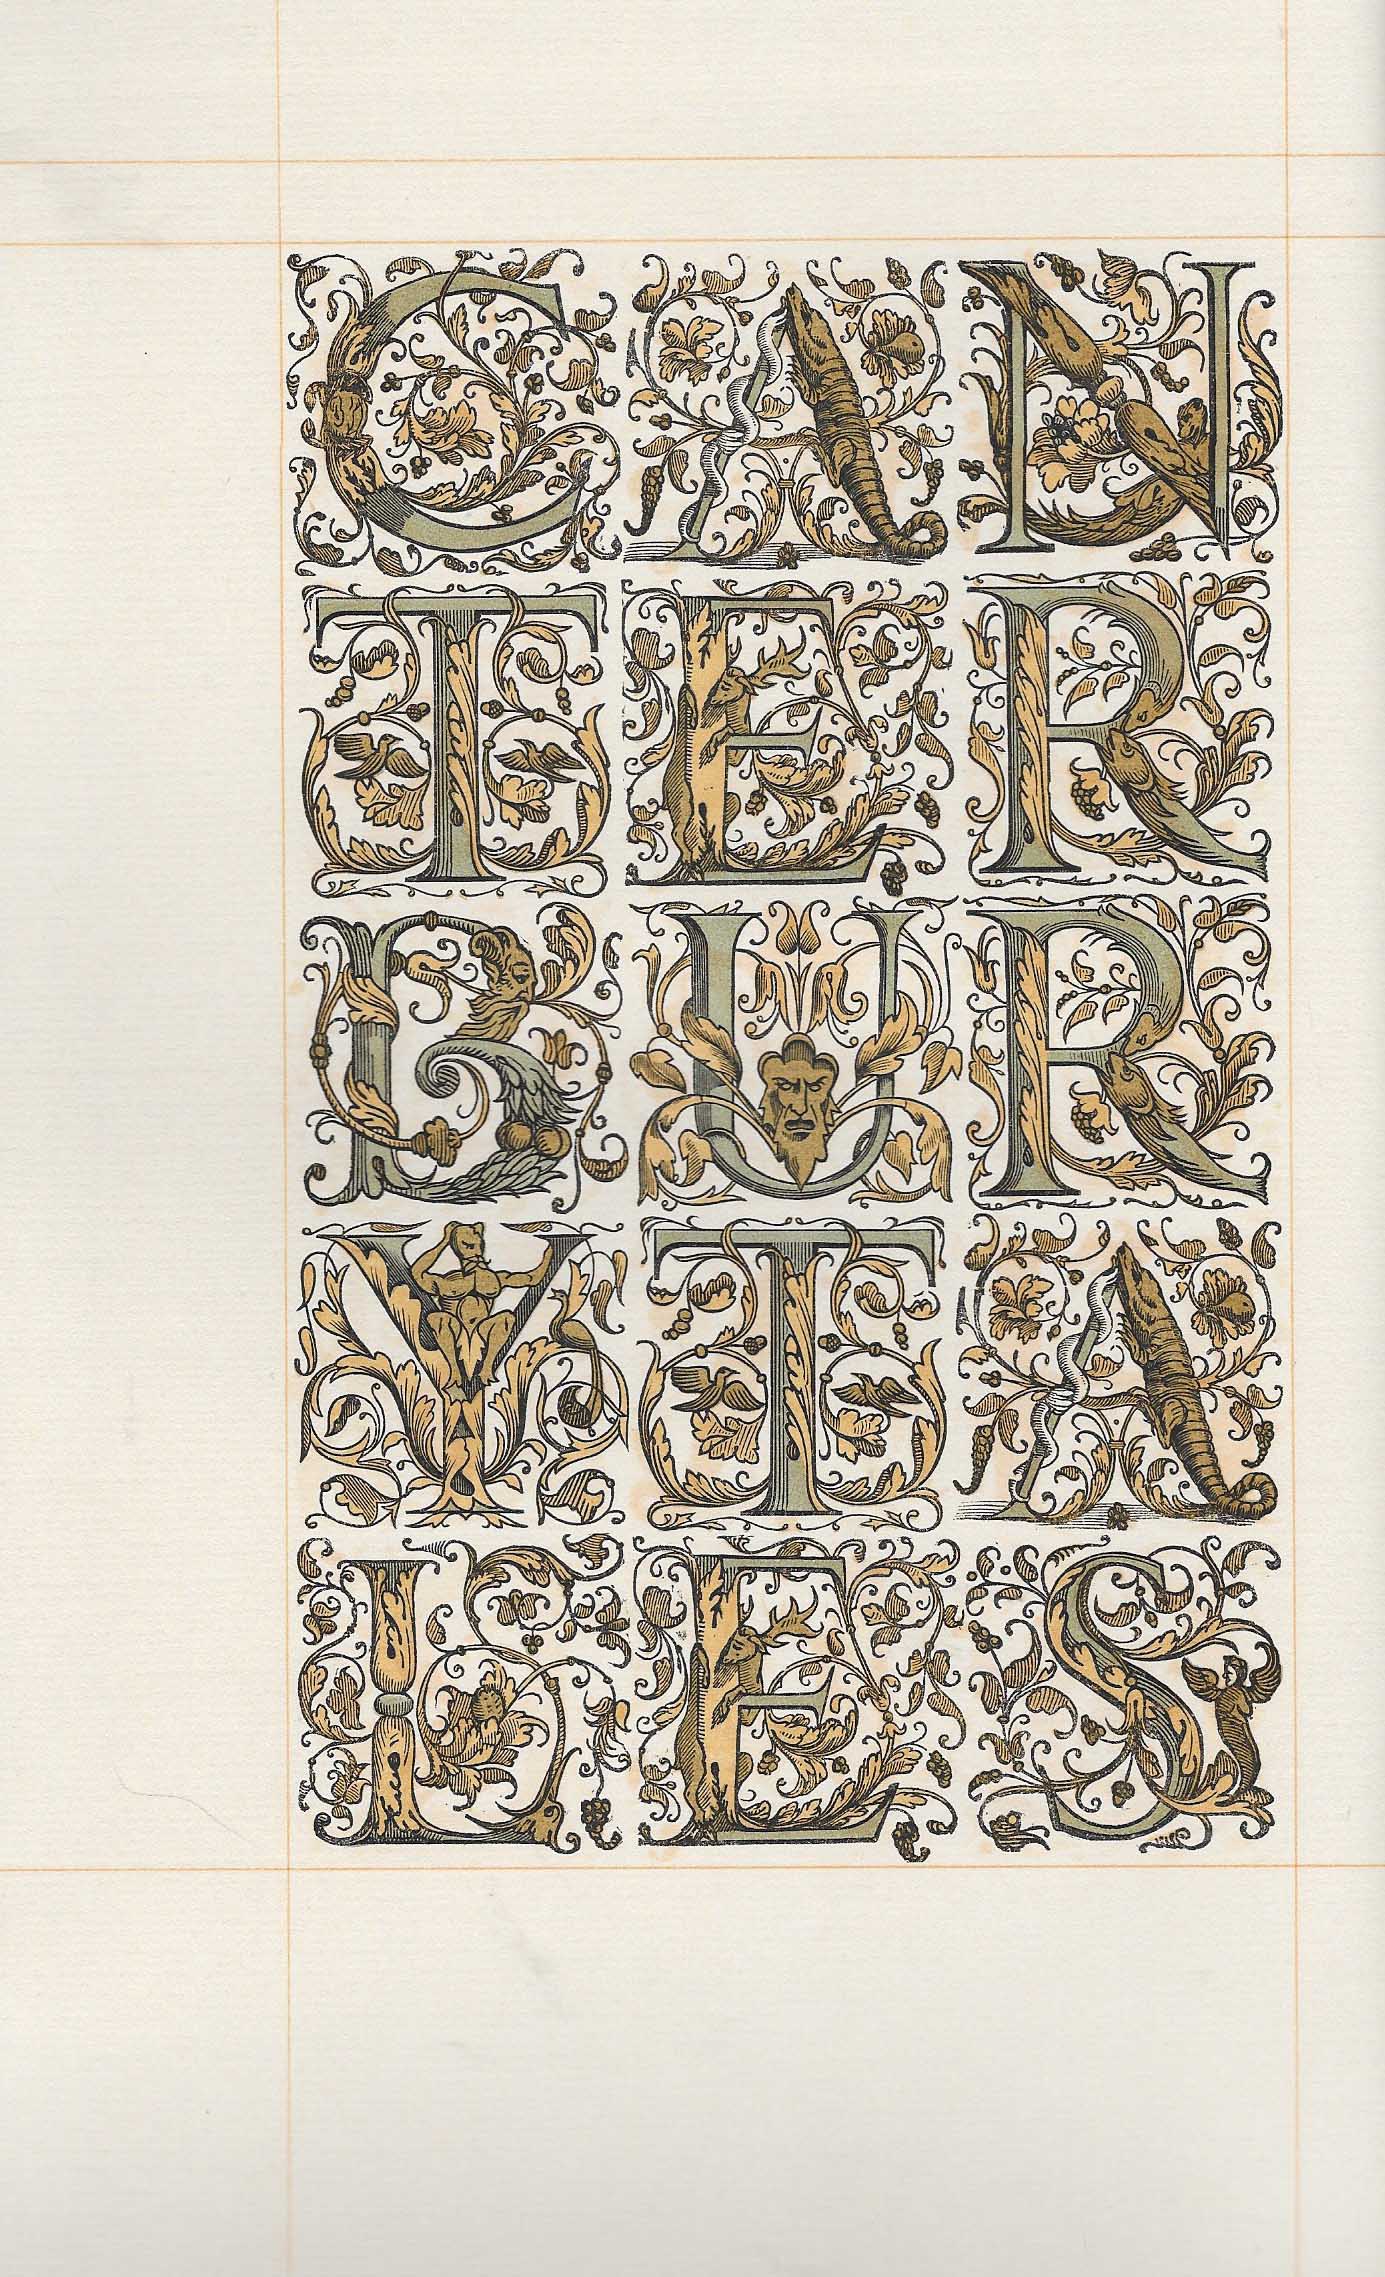 CAN
TER
BUR
YTA
LES